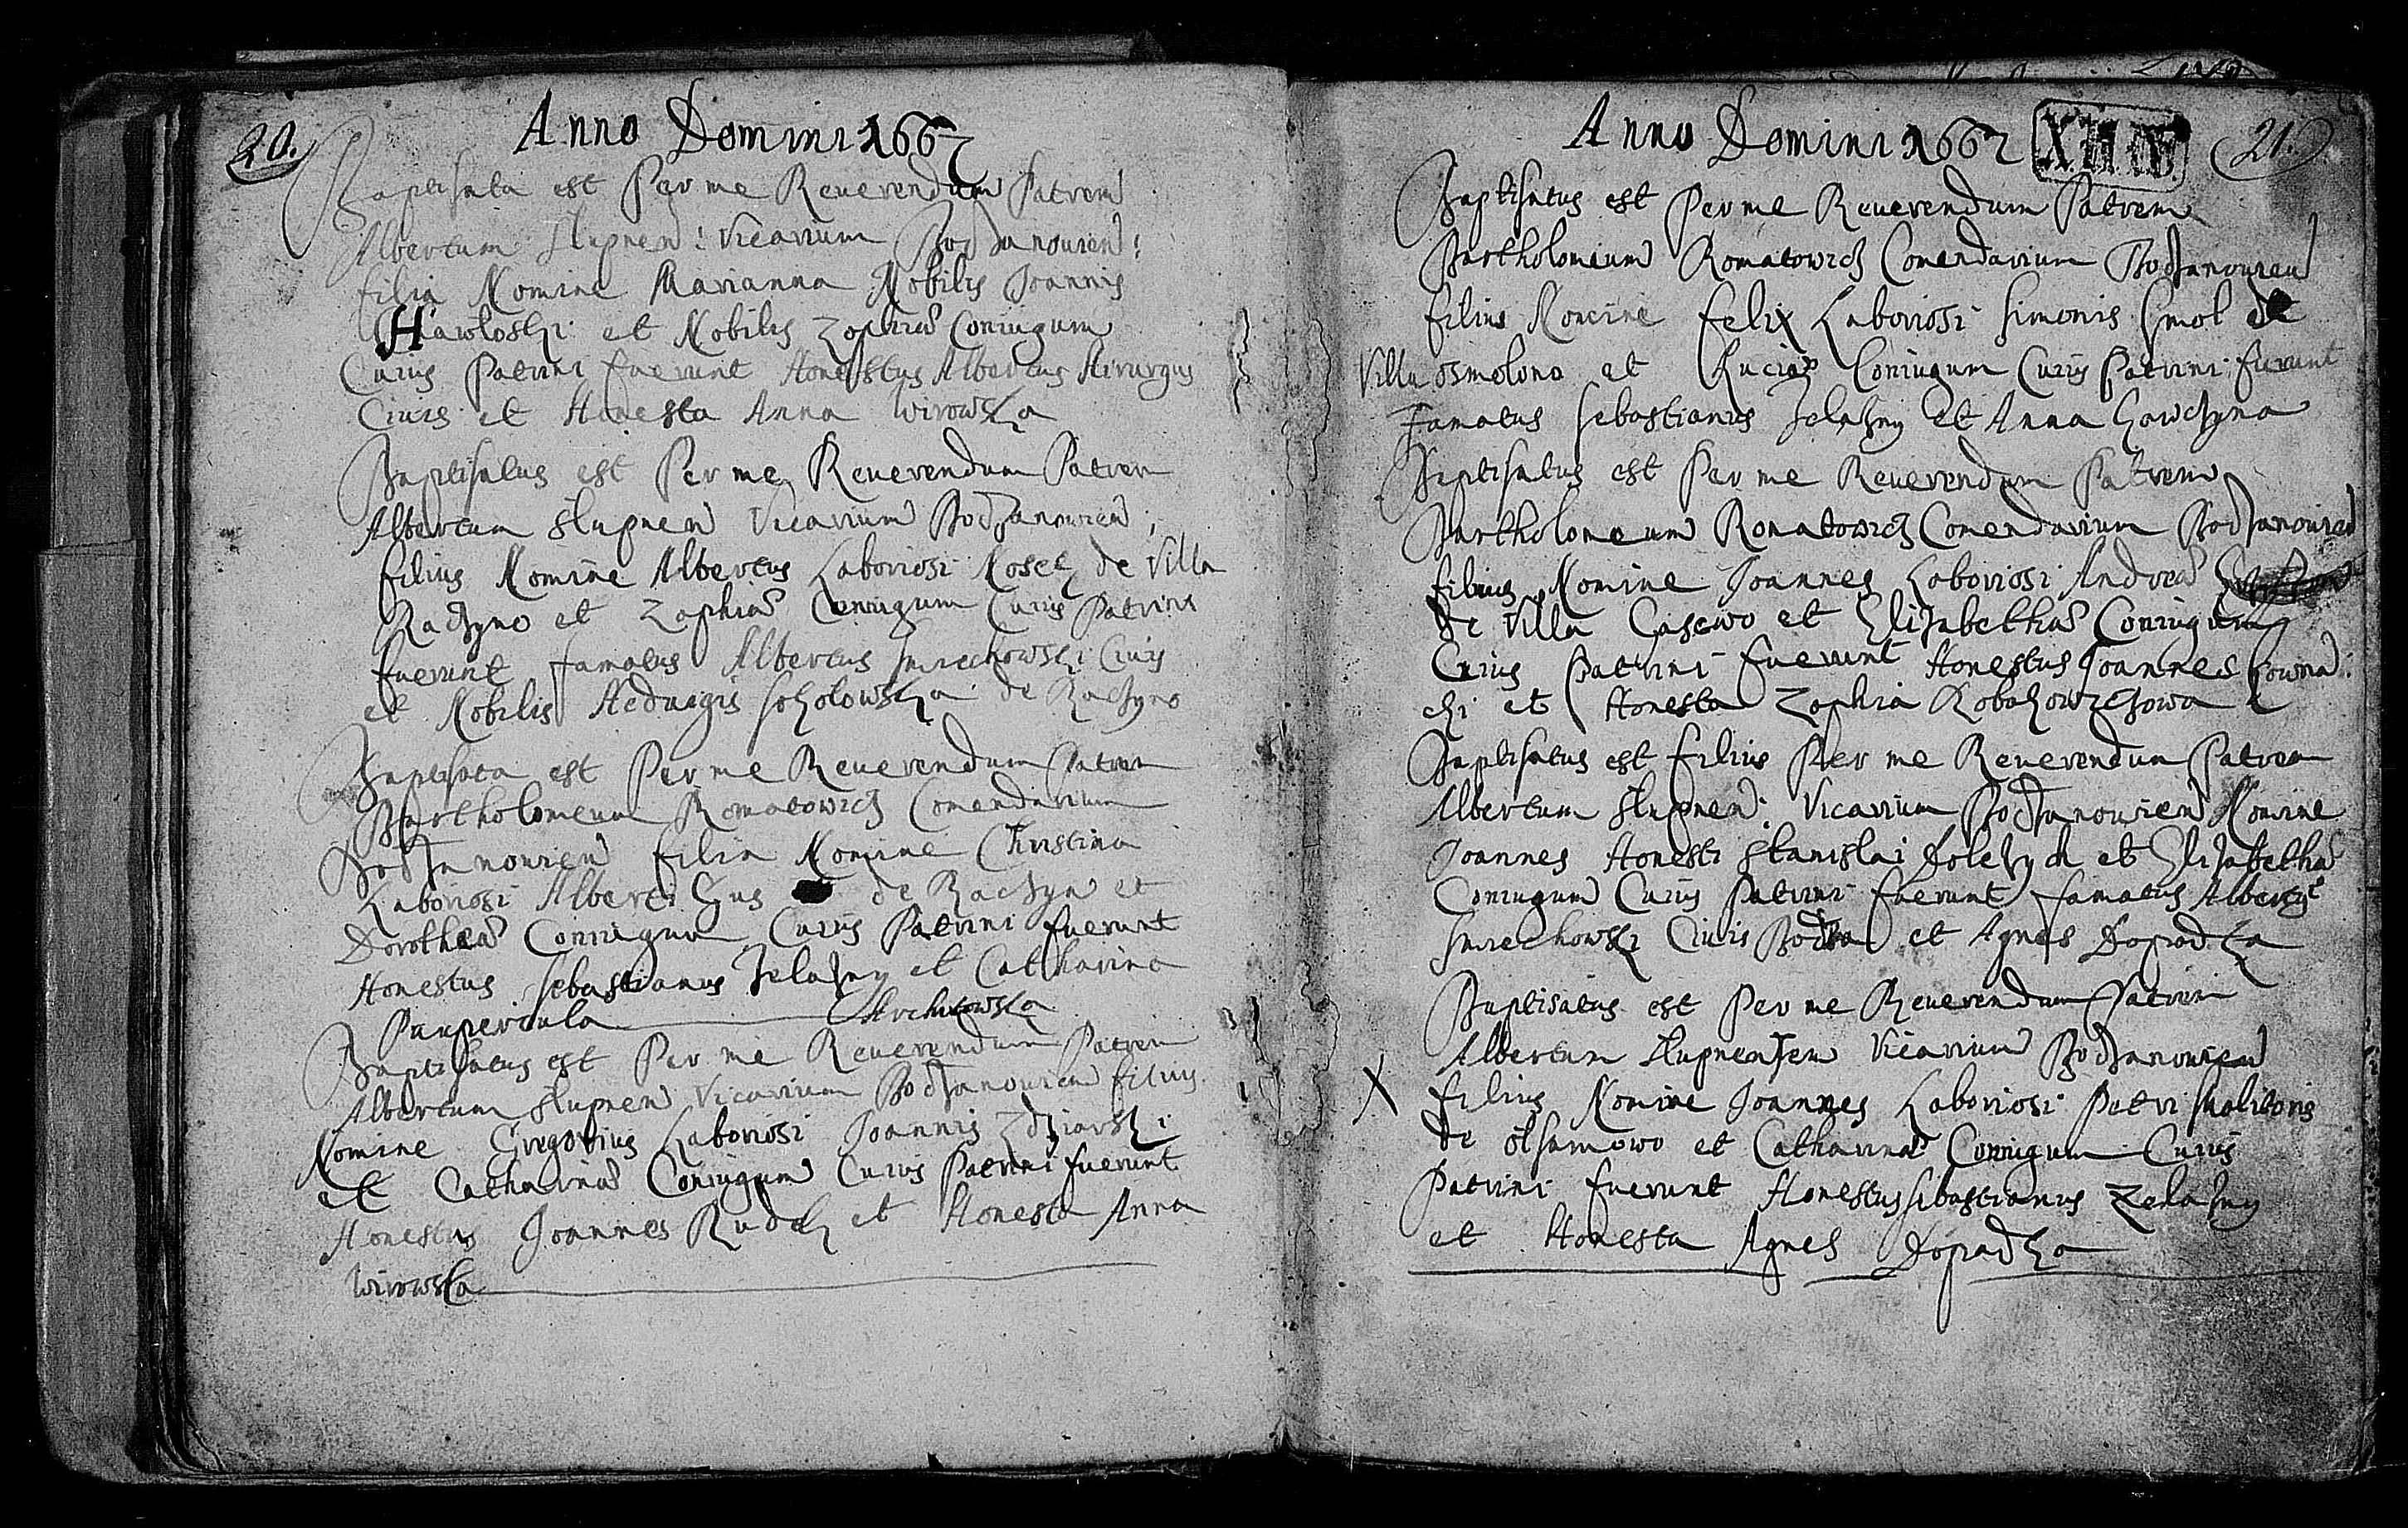 20.
Anno Domini 1662
Baptisata est Per me Reuerendum Patrem
Albertum Slupnen: Vicarium Bodzanouien:
filia Nomine Marianna Nobilis Joannis
et Nobilis Zophiæ Coniugum
Cuius Patrini fuerunt Honestus Albertus Kirurgus
Ciuis et Honesta Anna Wirowska
Baptisatus est Per me Reuerendum Patrem
Albertum Slupnen Vicarium Bodzanouien;
filius Nomine Albertus Laboriosi Kosek de Villa
Raczyno et Zophiæ Coniugum Cuius Patrini
fuerunt famatus Albertus Smiechowski Ciuis
et Nobilis Heduigis Sokolowska de Raczyno
Baptisata est Per me Reuerendum Patrem
Bartholomeum Romatowicz Comendarium
Bodzanouien filia Nomine Christina
Laboriosi Alberti Gus de Raczyn et
Dorotheæ Coniugum Cuius Patrini fuerunt
Honestus Sebastianus Zelazny et Catharina
Paupercula Archutowska
Baptisatus est Per me Reuerendum Patrem
Albertum Slupnen Vicarium Bodzanouien filius
Nomine Gregorius Laboriosi Joannis Zdziarski
et Catharinæ Coniugum Cuius Patrini fuerunt
Honestus Joannes Rudek et Honesta Anna
Wirowska
Anno Domini 1662
21.
Baptisatus est Per me Reuerendum Patrem
Bartholomeum Romatowicz Comendarium Bodzanouien
filius Nomine felix Laboriosi Simonis Smol de
Villa Osmolono et Luciæ Coniugum Cuius Patrini fuerunt
Famatus Sebastianus Zelazny et Anna
Baptisatus est Per me Reuerendum Patrem
Bartholomeum Romatowicz Comendarium Bodzanouien
filius Nomine Joannes Laboriosi Andreæ
de Villa Gasewo et Elizabethæ Coniugum
Cuius Patrini fuerunt Honestus Joannes
et Honesta Zophia
Baptisatus est filius Per me Reuerendum Patrem
Albertum Slupnen: Vicarium Bodzanouien Nomine
Joannes Honesti Stanislai Dolezych et Elizabethæ
Coniugum Cuius Patrini fuerunt famatus Albertus
Smiechowski Ciuis Bodza et Agnes Dopadka
Baptisatus est Per me Reuerendum Patrem
Albertum Slupnensem Vicarium Bodzanouien
X filius Nomine Joannes Laboriosi Petri Molitoris
de et Catharinæ Coniugum Cuius
Patrini fuerunt Honestus Sebastianus Zelazny
et Honesta Agnes Dopadka